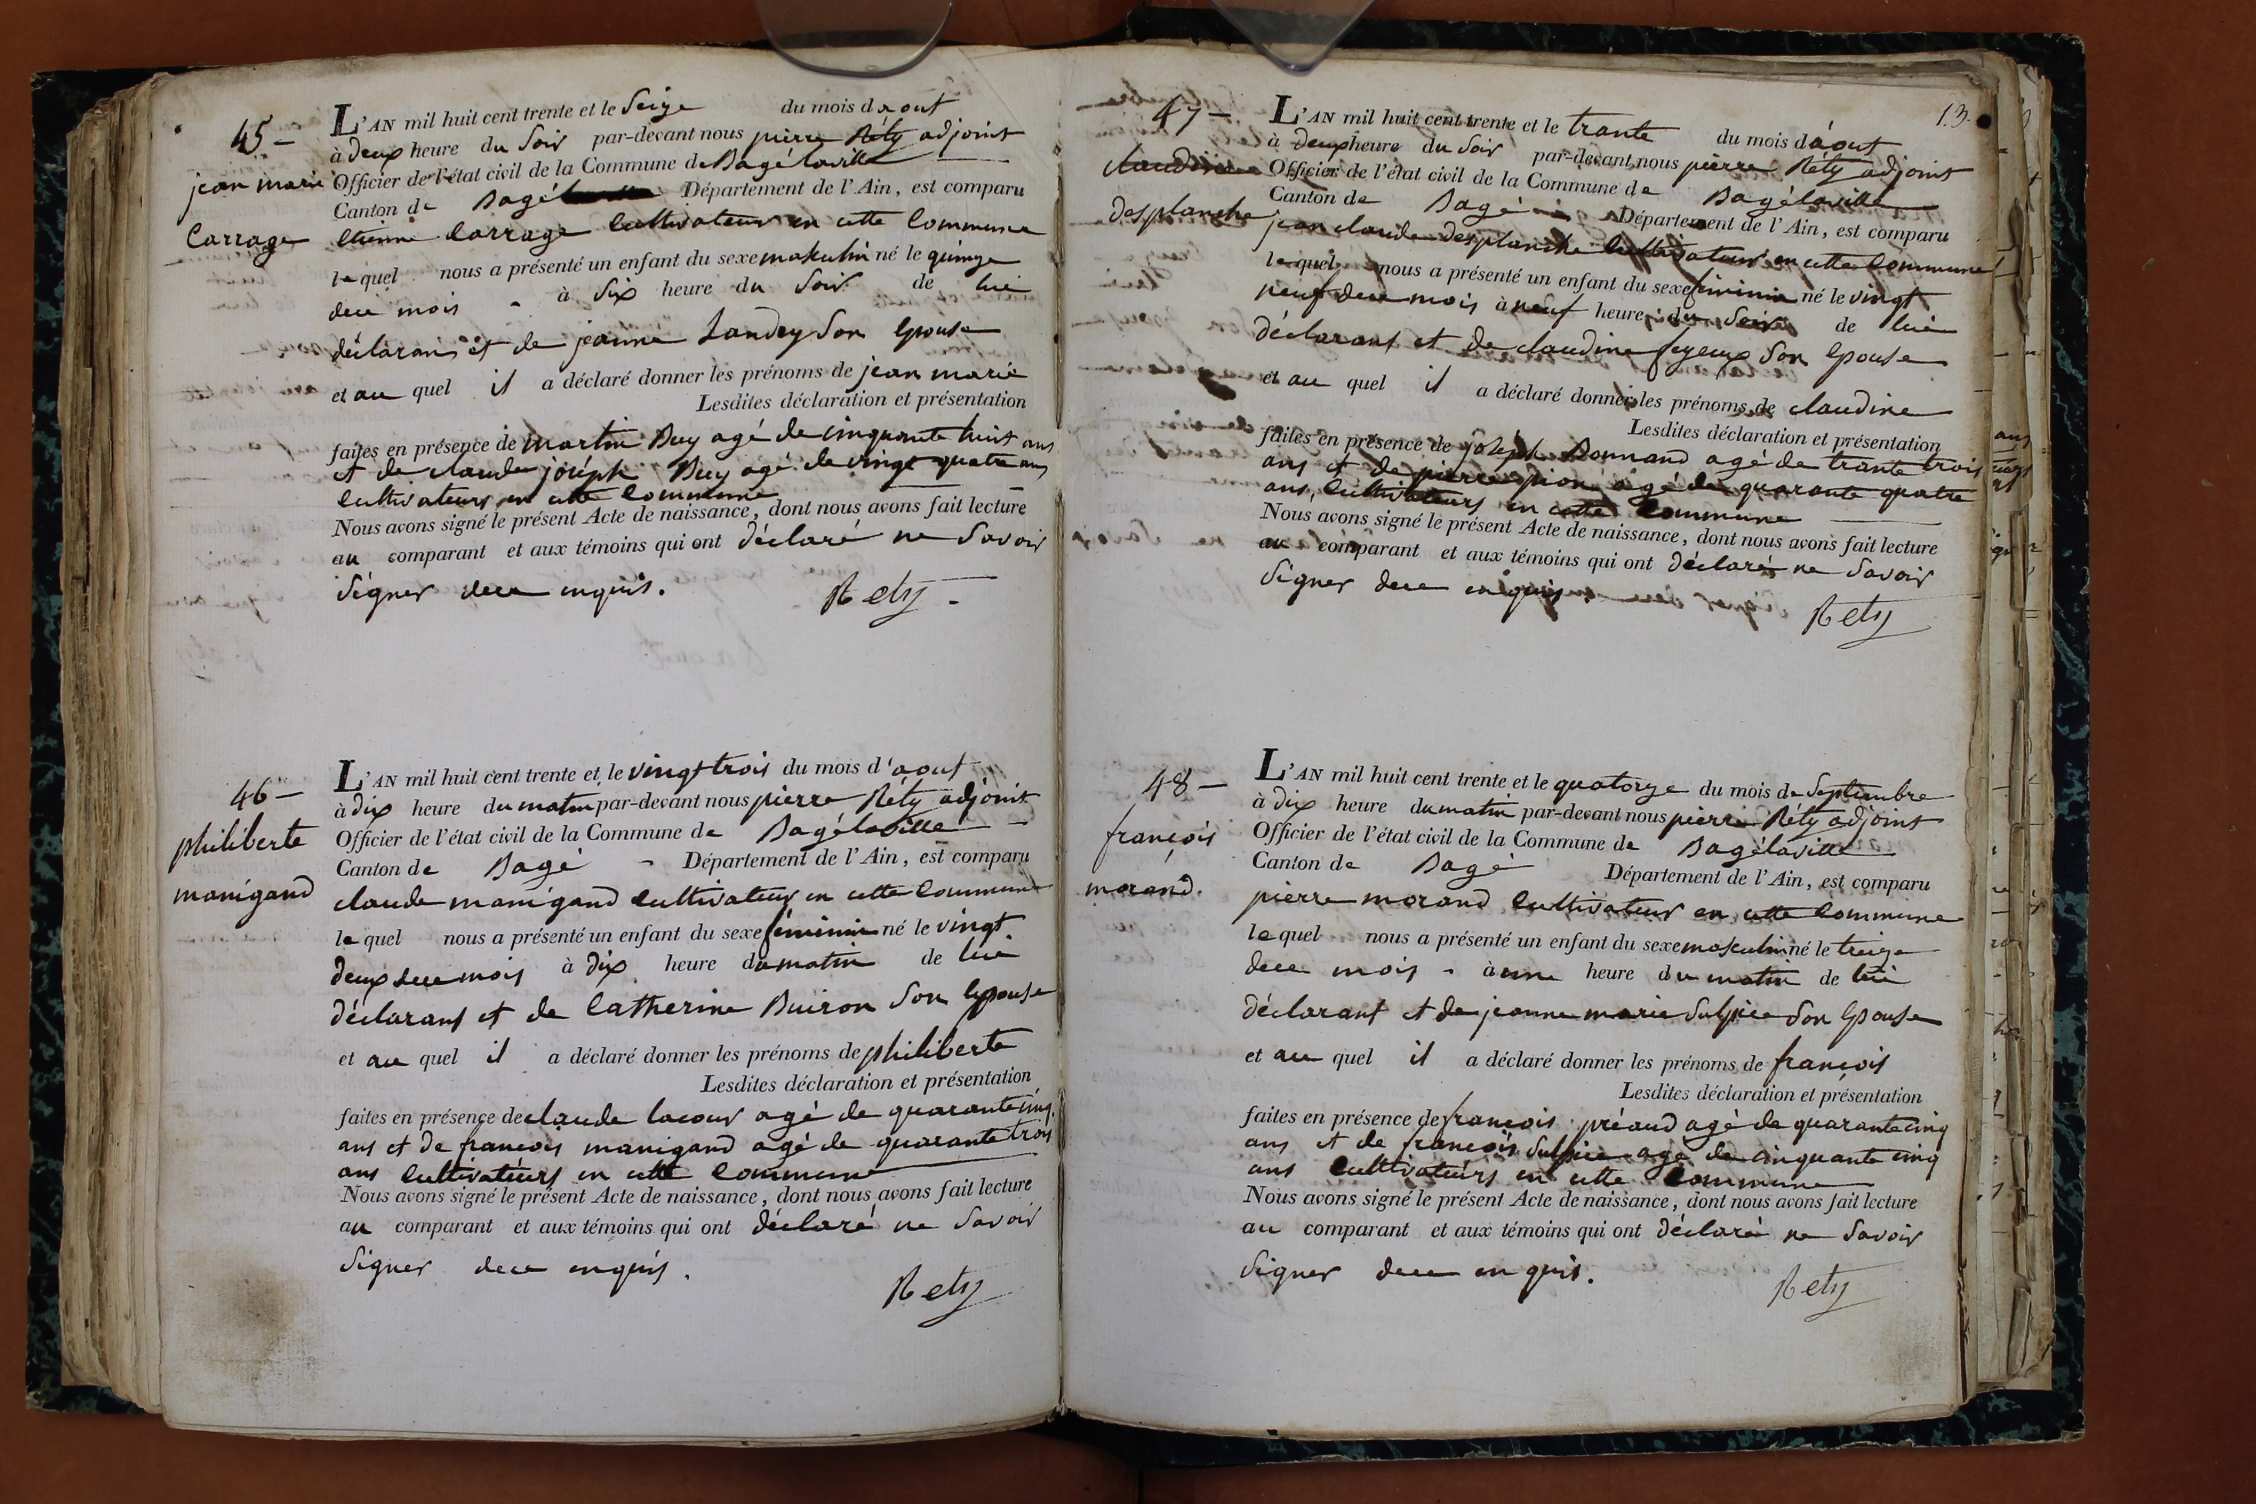 45 —
jean marie
Carrage
L'AN mil huit cent trente et le Seize du mois d'aout
à deux heure du Soir par-devant nous pierre Réty adjoint
Officier de l'état civil de la Commune de Bagélaville
Canton de Bagé Département de l'Ain, est comparu
Etienne Carrage Cultivateur en cette Commune
lequel nous a présenté un enfant du sexe masculin né le quinze
dece mois à Six heure du Soir de lui
déclarant et de jeanne Landry Son Epouse
et au quel il a déclaré donner les prénoms de jean marie
Lesdites déclaration et présentation
faites en présence de martin Buy agé de cinquante huit ans
et de claude joséph Buy agé de vingt quatre ans
Cultivateurs en cette Commune
Nous avons signé le présent Acte de naissance, dont nous avons fait lecture
au comparant et aux témoins qui ont déclaré ne Savoir
Signer dece enquis.
Rety
46 —
philiberte
manigand
L'AN mil huit cent trente et le vingt trois du mois d'aout
à dix heure du matin par-devant nous pierre Réty adjoint
Officier de l'état civil de la Commune de Bagélaville
Canton de Bagé Département de l'Ain, est comparu
claude manigand Cultivateur en cette Commune
lequel nous a présenté un enfant du sexe féminin né le vingt
deux dece mois à dix heure du matin de lui
déclarant et de Catherine Buiron Son Epouse
et au quel il a déclaré donner les prénoms de philiberte
Lesdites déclaration et présentation
faites en présence de claude lacour agé de quarante cinq
ans et de françois manigand agé de quarante trois
ans Cultivateurs en cette Commune
Nous avons signé le présent Acte de naissance, dont nous avons fait lecture
au comparant et aux témoins qui ont déclaré ne Savoir
Signer dece enquis.
Rety
13.
47 —
claudine
desplanche
L'AN mil huit cent trente et le trante du mois d'aout
à deux heure du Soir par-devant nous pierre Réty adjoint
Officier de l'état civil de la Commune de Bagélaville
Canton de Bagé Département de l'Ain, est comparu
jean claude desplanche Cultivateur en cette Commune
lequel nous a présenté un enfant du sexe féminin né le vingt
neuf dece mois à neuf heure du Soir de lui
déclarant et de claudine feyeux Son Epouse
et au quel il a déclaré donner les prénoms de claudine
Lesdites déclaration et présentation
faites en présence de joséph Bonnand agé de trante trois
ans et de pierre pion agé de quarante quatre
ans, Cultivateurs en cette Commune
Nous avons signé le présent Acte de naissance, dont nous avons fait lecture
au comparant et aux témoins qui ont déclaré ne Savoir
Signer dece enquis.
Rety
48 —
françois
morand.
L'AN mil huit cent trente et le quatorze du mois de Septembre
à dix heure du matin par-devant nous pierre Réty adjoint
Officier de l'état civil de la Commune de Bagélaville
Canton de Bagé Département de l'Ain, est comparu
pierre morand Cultivateur en cette Commune
lequel nous a présenté un enfant du sexe masculin né le treize
dece mois à une heure du matin de lui
déclarant et de jeanne marie Sulpice Son Epouse
et au quel il a déclaré donner les prénoms de françois
Lesdites déclaration et présentation
faites en présence de françois préaud agé de quarante cinq
ans et de françois Sulpice agé de cinquante cinq
ans Cultivateurs en cette Commune
Nous avons signé le présent Acte de naissance, dont nous avons fait lecture
au comparant et aux témoins qui ont déclaré ne Savoir
Signer dece enquis.
Rety